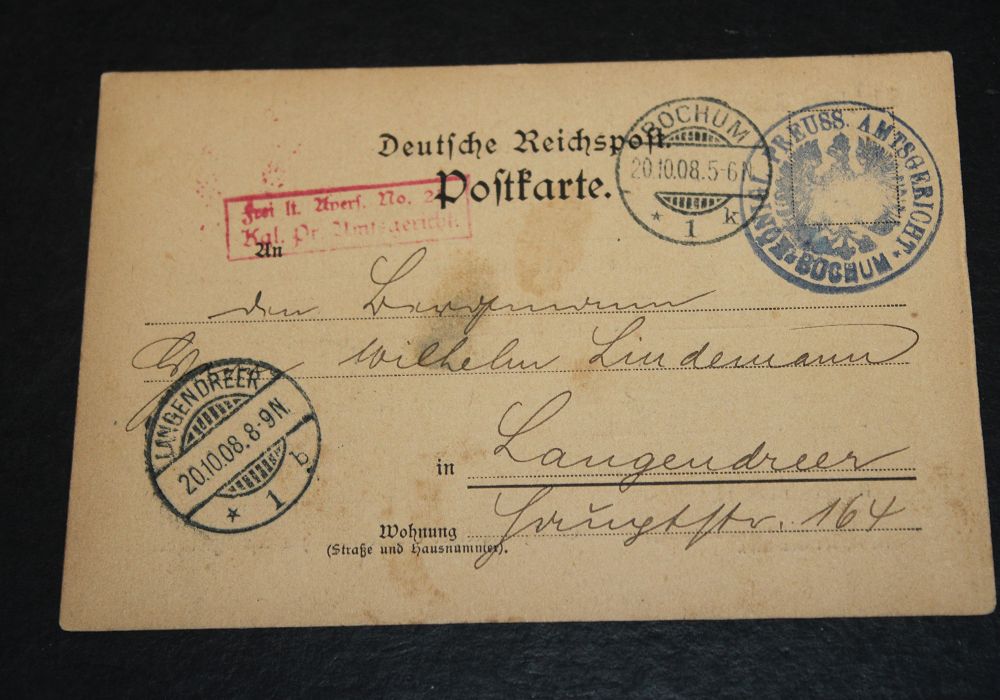 Deutsche Reichspost.
Postkarte.
BOCHUM
20.10.08.5-6N.
* 1 k
KÖNIGL. PREUSS. AMTSGERICHT
* BOCHUM *
Frei lt. Avers. No. 2
Kgl. Pr. Amtsgericht.
An
den Bergmann
Wilhelm Lindemann
LANGENDREER
20.10.08.8-9N.
* 1 b.
in Langendreer
Hauptstr. 164
Wohnung
(Straße und Hausnummer).